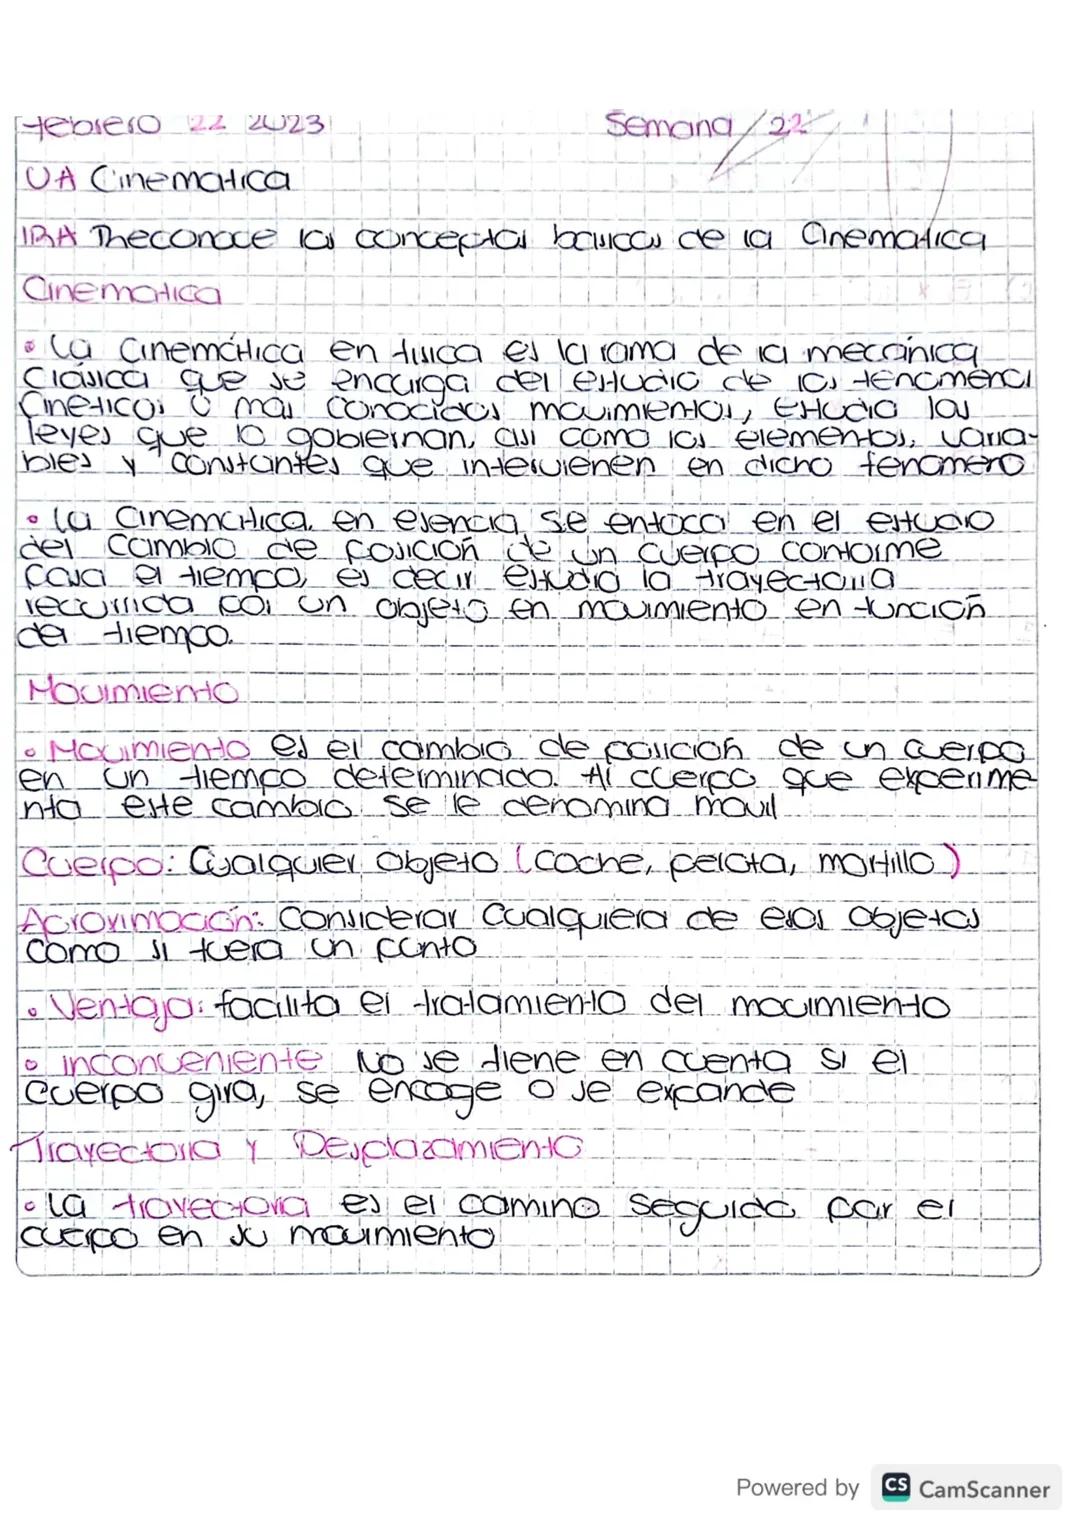 Febrero 22 2023 Semana 22
UA Cinematica
IRA Reconoce los conceptos basicos de la Cinematica
Cinematica
• La Cinemática en fisica es la rama de la mecánica
Clásica que se encarga del estudio de los fenomenos
Cinéticos o más conocidos movimientos, Estudia las
leyes que lo gobiernan, asi como los elementos, varia-
bles y constantes que intervienen en dicho fenomeno
• La Cinematica, en esencia, se enfoca en el estudio
del Cambio de Posición de un cuerpo conforme
pasa el tiempo, es decir estudia la trayectoria
recurrida por un objeto en movimiento en función
del tiempo.
Movimiento
• Movimiento es el cambio de posición de un cuerpo
en un tiempo determinado. Al cuerpo que experime-
nta este cambio se le denomina movil
Cuerpo: Cualquier objeto (coche, pelota, martillo)
Aproximación: Considerar Cualquiera de esos objetos
como si fuera un punto
• Ventaja: facilita el tratamiento del movimiento
• inconveniente No se tiene en cuenta si el
cuerpo gira, se encoge o se expande
Trayectoria y Desplazamiento
• La trayectoria es el camino seguido por el
cuerpo en su movimiento
Powered by CS CamScanner